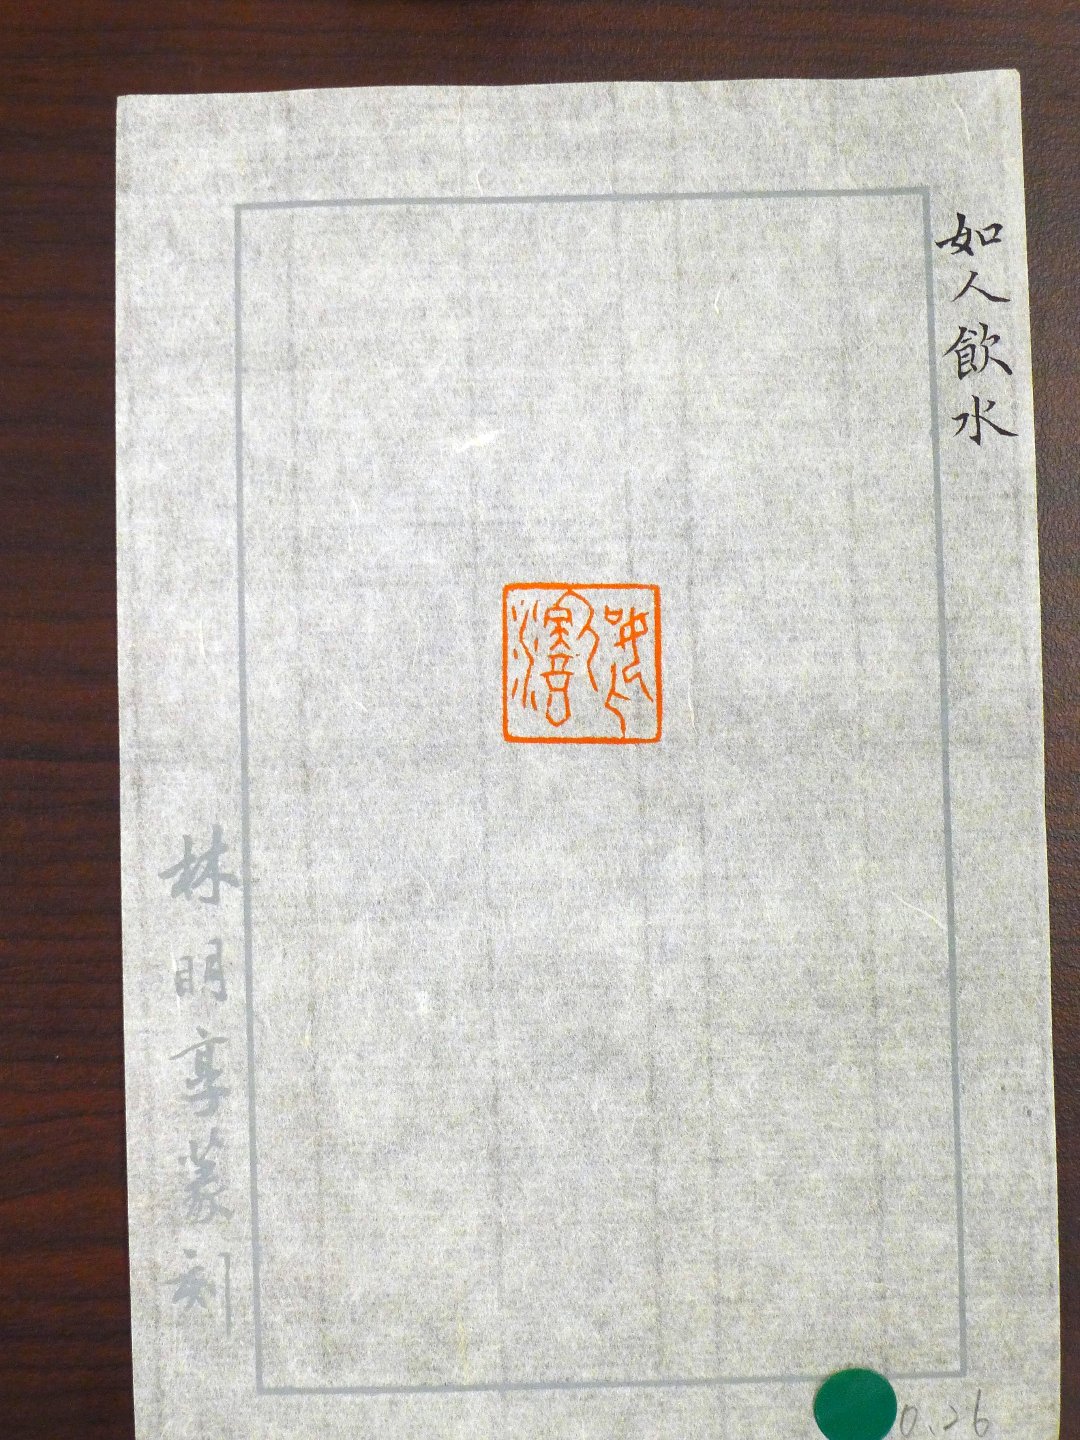 如人飲水
林明享篆刻
0.26